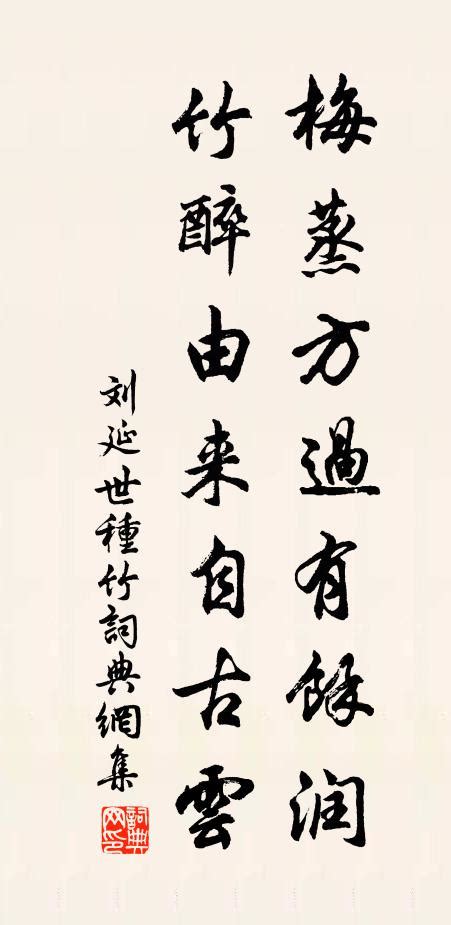 梅蒸方過有餘润
竹醉由来自古雲
刘延世種竹詞典網集
詞典網印